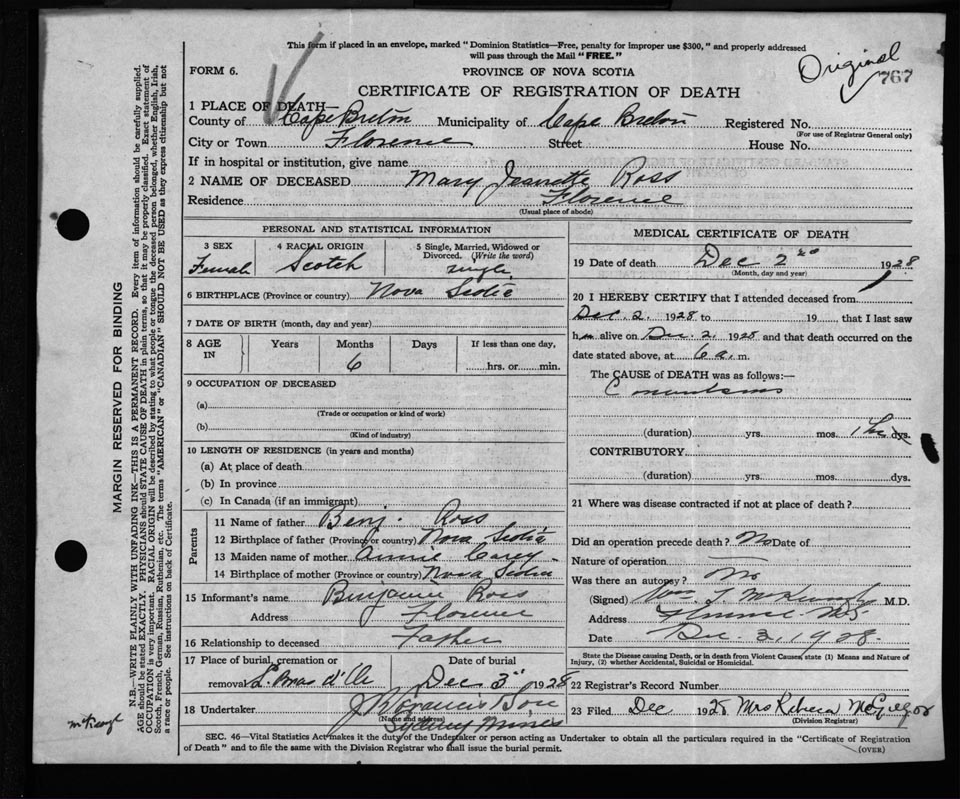 This form if placed in an envelope, marked "Dominion Statistics—Free, penalty for improper use $300," and properly addressed
will pass through the Mail "FREE."
Original
FORM 6.
PROVINCE OF NOVA SCOTIA
767
CERTIFICATE OF REGISTRATION OF DEATH
1 PLACE OF DEATH—
County of Cape Breton Municipality of Cape Breton Registered No.
(For use of Registrar General only)
City or Town Florence Street House No.
If in hospital or institution, give name
2 NAME OF DECEASED Mary Jeanette Ross
Residence Florence
(Usual place of abode)
PERSONAL AND STATISTICAL INFORMATION
3 SEX 4 RACIAL ORIGIN 5 Single, Married, Widowed or
Divorced. (Write the word)
Female Scotch single
6 BIRTHPLACE (Province or country) Nova Scotia
7 DATE OF BIRTH (month, day and year)
8 AGE IN Years Months Days If less than one day,
6 hrs. or min.
9 OCCUPATION OF DECEASED
(a)
(Trade or occupation or kind of work)
(b)
(Kind of industry)
10 LENGTH OF RESIDENCE (in years and months)
(a) At place of death
(b) In province
(c) In Canada (if an immigrant)
Parents
11 Name of father Benj. Ross
12 Birthplace of father (Province or country) Nova Scotia
13 Maiden name of mother Annie Carey
14 Birthplace of mother (Province or country) Nova Scotia
15 Informant's name Benjamin Ross
Address Florence
16 Relationship to deceased Father
17 Place of burial, cremation or Date of burial
removal L. Bras d'Or Dec 3 1928
18 Undertaker J. Francis Son
(Name and address)
Sydney Mines
MEDICAL CERTIFICATE OF DEATH
19 Date of death Dec 2 1928
(Month, day and year)
20 I HEREBY CERTIFY that I attended deceased from
Dec. 2. 1928 to 19 , that I last saw
h alive on Dec. 2. 1928 and that death occurred on the
date stated above, at 6 a. m.
The CAUSE of DEATH was as follows:—
Convulsions
(duration) yrs. mos. 1 dys.
CONTRIBUTORY
(duration) yrs. mos. dys.
21 Where was disease contracted if not at place of death?
Did an operation precede death? No Date of
Nature of operation
Was there an autopsy? No
(Signed) Wm T. M.D.
Address Florence N.S.
Date Dec. 3. 1928.
State the Disease causing Death, or in death from Violent Causes, state (1) Means and Nature of
Injury, (2) whether Accidental, Suicidal or Homicidal.
22 Registrar's Record Number
23 Filed Dec 1928 Mrs Rebecca McGregor
(Division Registrar)
SEC. 46—Vital Statistics Act makes it the duty of the Undertaker or person acting as Undertaker to obtain all the particulars required in the "Certificate of Registration
of Death" and to file the same with the Division Registrar who shall issue the burial permit.
(OVER)
MARGIN RESERVED FOR BINDING
N.B.—WRITE PLAINLY WITH UNFADING INK—THIS IS A PERMANENT RECORD. Every item of information should be carefully supplied.
AGE should be stated EXACTLY. PHYSICIANS should STATE CAUSE OF DEATH in plain terms, so that it may be properly classified. Exact statement of
OCCUPATION is very important. RACIAL ORIGIN will be described by stating to what people or tongue the deceased person belonged, whether English, Irish,
Scotch, French, German, Russian, Ruthenian, etc. The terms "AMERICAN" or "CANADIAN" SHOULD NOT BE USED as they express citizenship but not
a race or people. See instructions on back of Certificate.